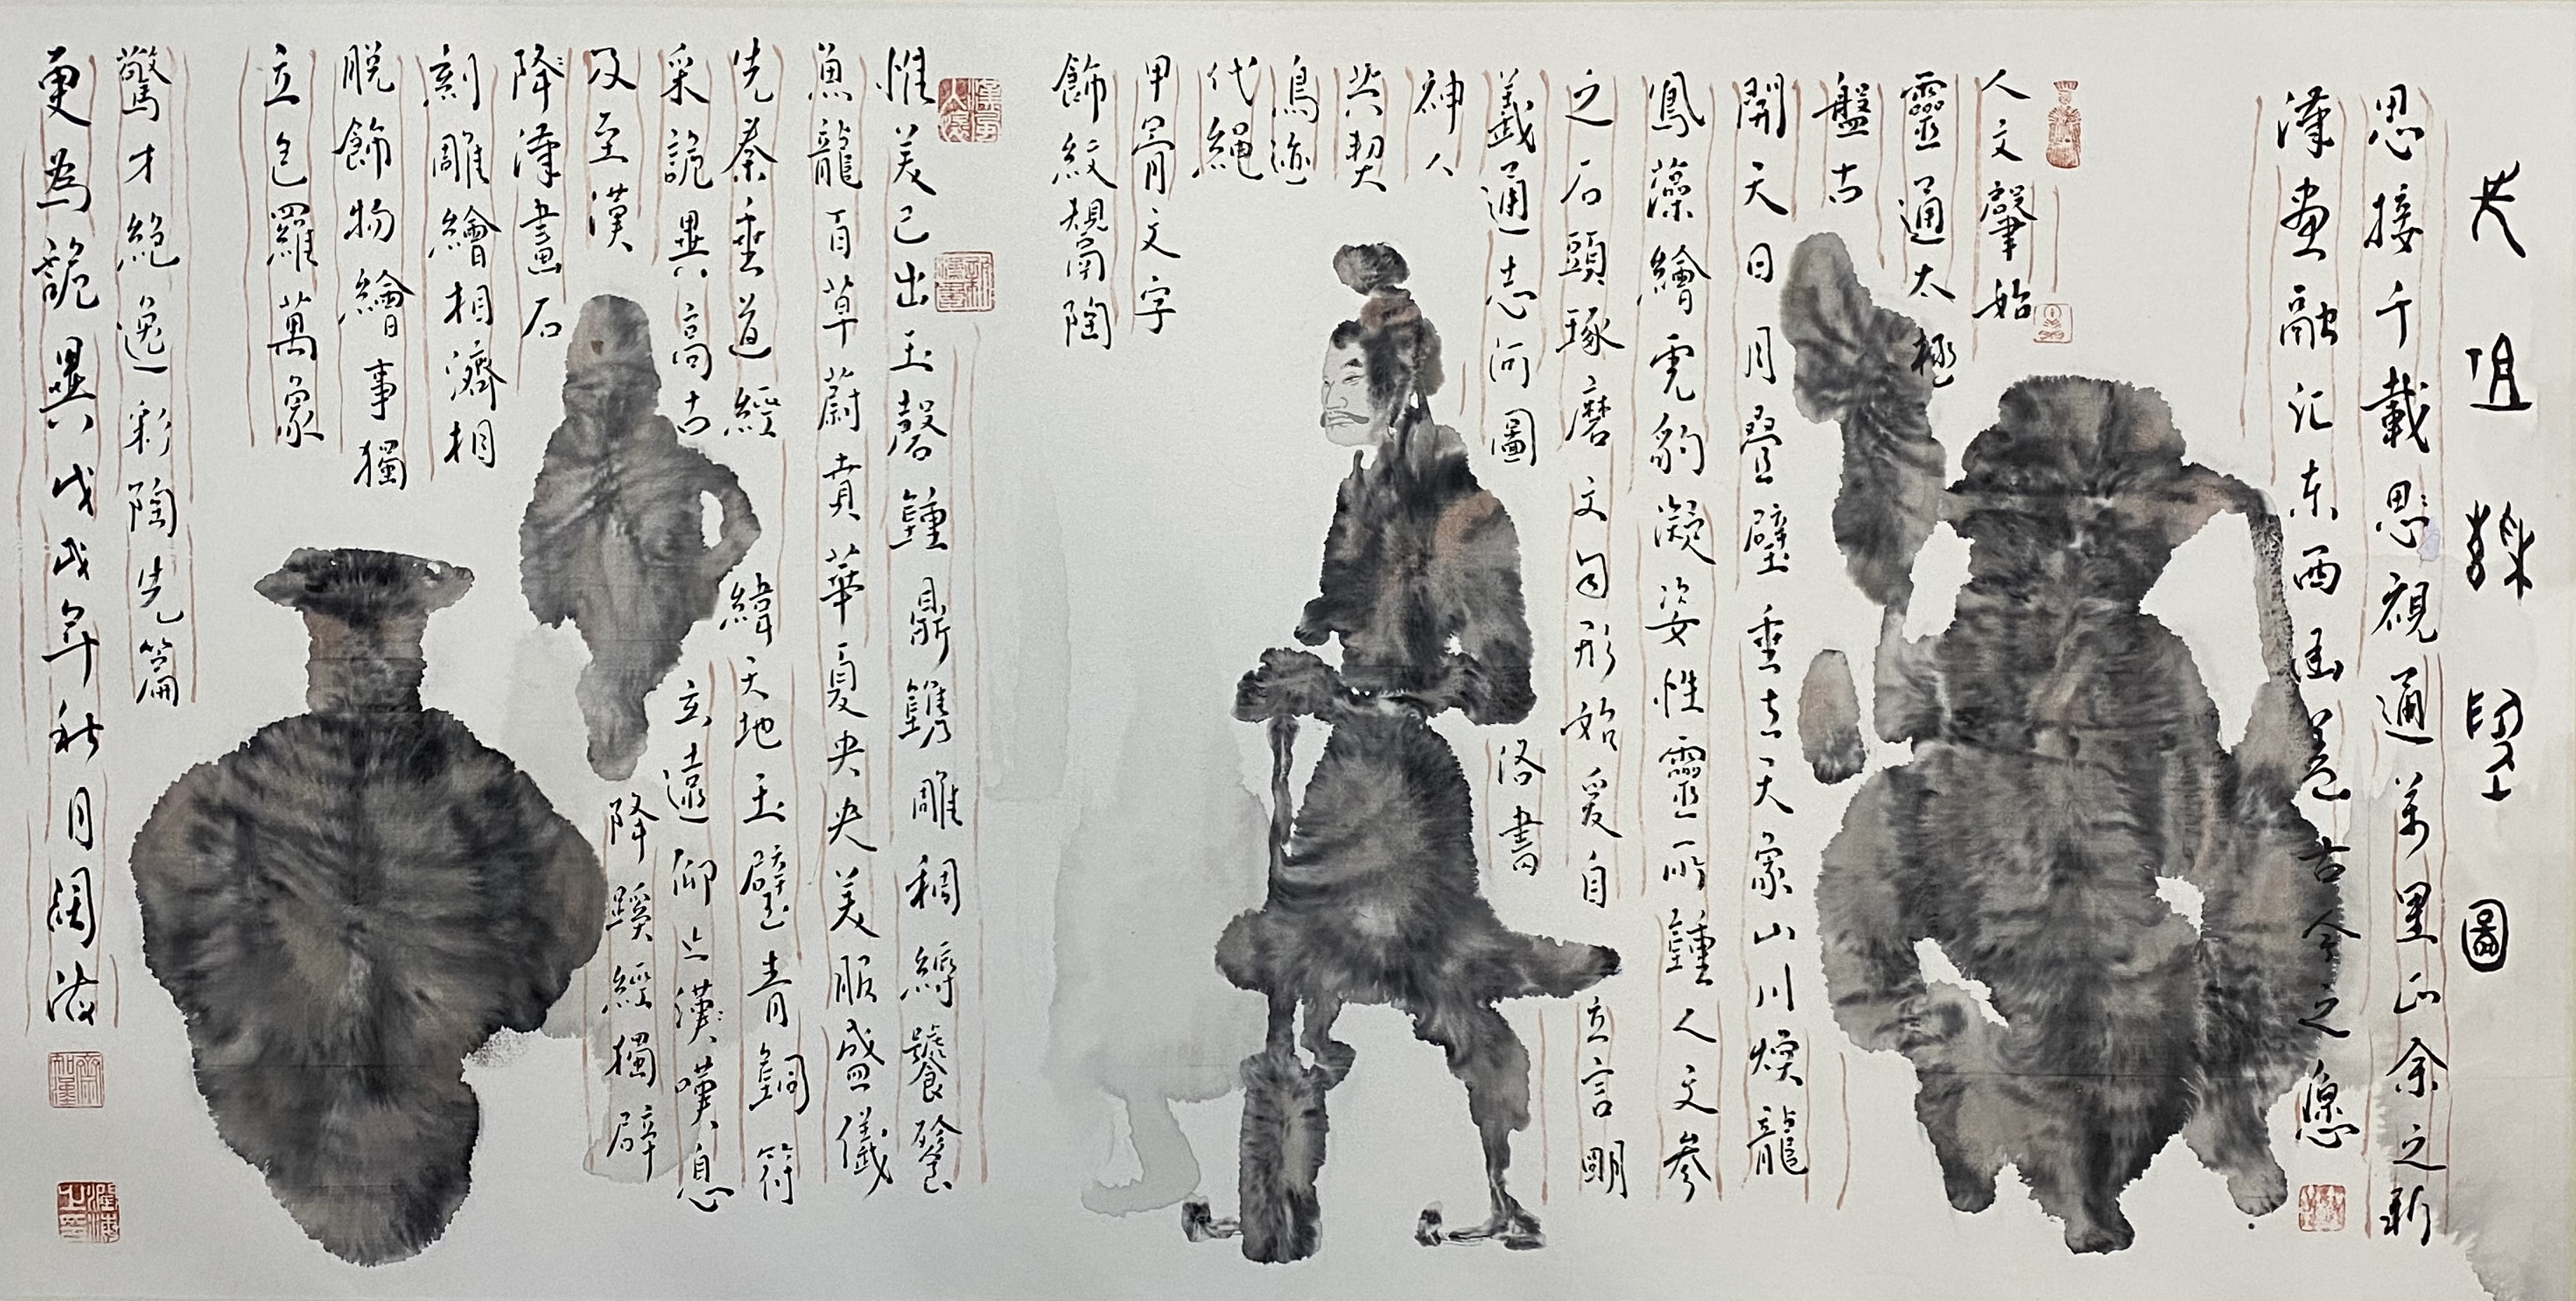 圖
思接千載思視通萬里山余之新
漢畫融汇东西函盖古今之愿
人文肇始
靈通太極
盤古
開天日月疊壁垂玄天象山川煥龍
鳳藻繪虎豹凝姿性靈所鍾人文參
之石頭琢磨文句形始爰自立言明
義通通志河圖洛書
神人
契
鳥迹
代繩
甲骨文字
飾紋規鬲陶
惟美已出玉磬鐘鼎鐫雕稠縟饕餮
魚龍百草蔚賁華夏央央美服盛儀
先秦垂道經緯天地玉璧青銅符
采詭異高古玄遠仰止漢嘆息
及至漢
降漢畫石降蹊經獨辟
刻雕繪相濟相
脱飾物繪事獨
立包羅萬象
驚才絕逸彩陶先篇
更為詭異戊戌年秋月闊海